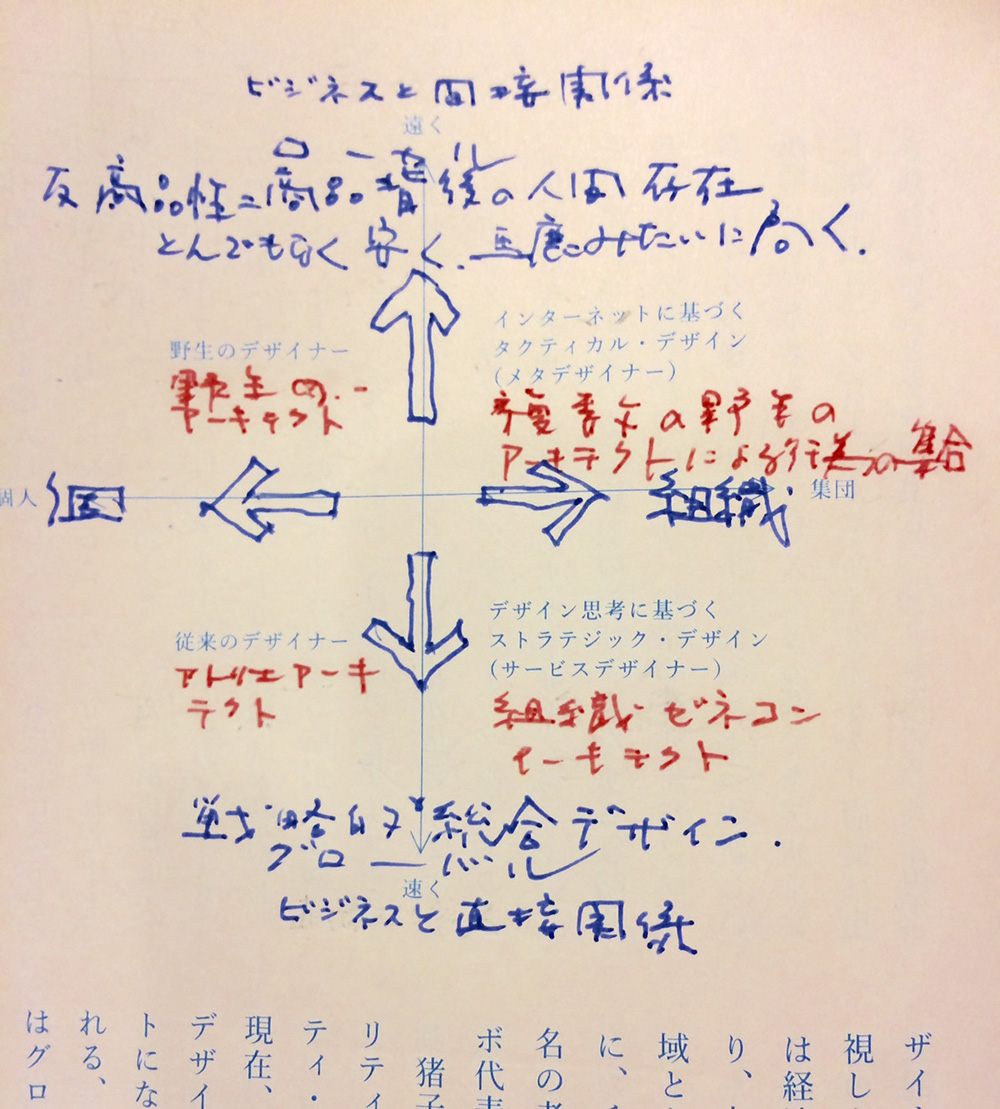 ビジネスと間接関係
遠く
ローカル
反商品性=商品背後の人間存在
とんでもなく安く、馬鹿みたいに高く。
インターネットに基づく
タクティカル・デザイン
(メタデザイナー)
野生のデザイナー
野生の
アーキテクト
複数の野生の
アーキテクトによる行為の集合
個人
個
組織
集団
デザイン思考に基づく
ストラテジック・デザイン
(サービスデザイナー)
従来のデザイナー
アトリエアーキ
テクト
組織ゼネコン
アーキテクト
戦略的総合デザイン.
グローバル
速く
ビジネスと直接関係
ザイ
視し
は経
り、
域と
に、
名の
ボ代表
猪子
リティ
ティ・
現在、
デザイ
トにな
れる、
はグロ